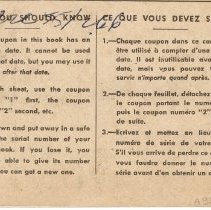 OU SHOULD KNOW
oupon in this book has an
te. It cannot be used
hat date, but you may use it
after that date.
ch sheet, use the coupon
"1" first, the coupon
"2" second, etc.
wn and put away in a safe
he serial number of your
book. If you lose it, you
able to give its number
you can get a new one.
CE QUE VOUS DEVEZ S
1.—Chaque coupon dans ce car
être utilisé à compter d'une
date. Il est inutilisable av
date, mais vous pouvez
servir n'importe quand après.
2.—De chaque feuillet, détachez
le coupon portant le numé
puis le coupon numéro "2"
de suite.
3.—Ecrivez et mettez en lieu
numéro de série de votre
S'il vous arrive de perdre ce
vous faudra donner le numé
série avant d'en obtenir un